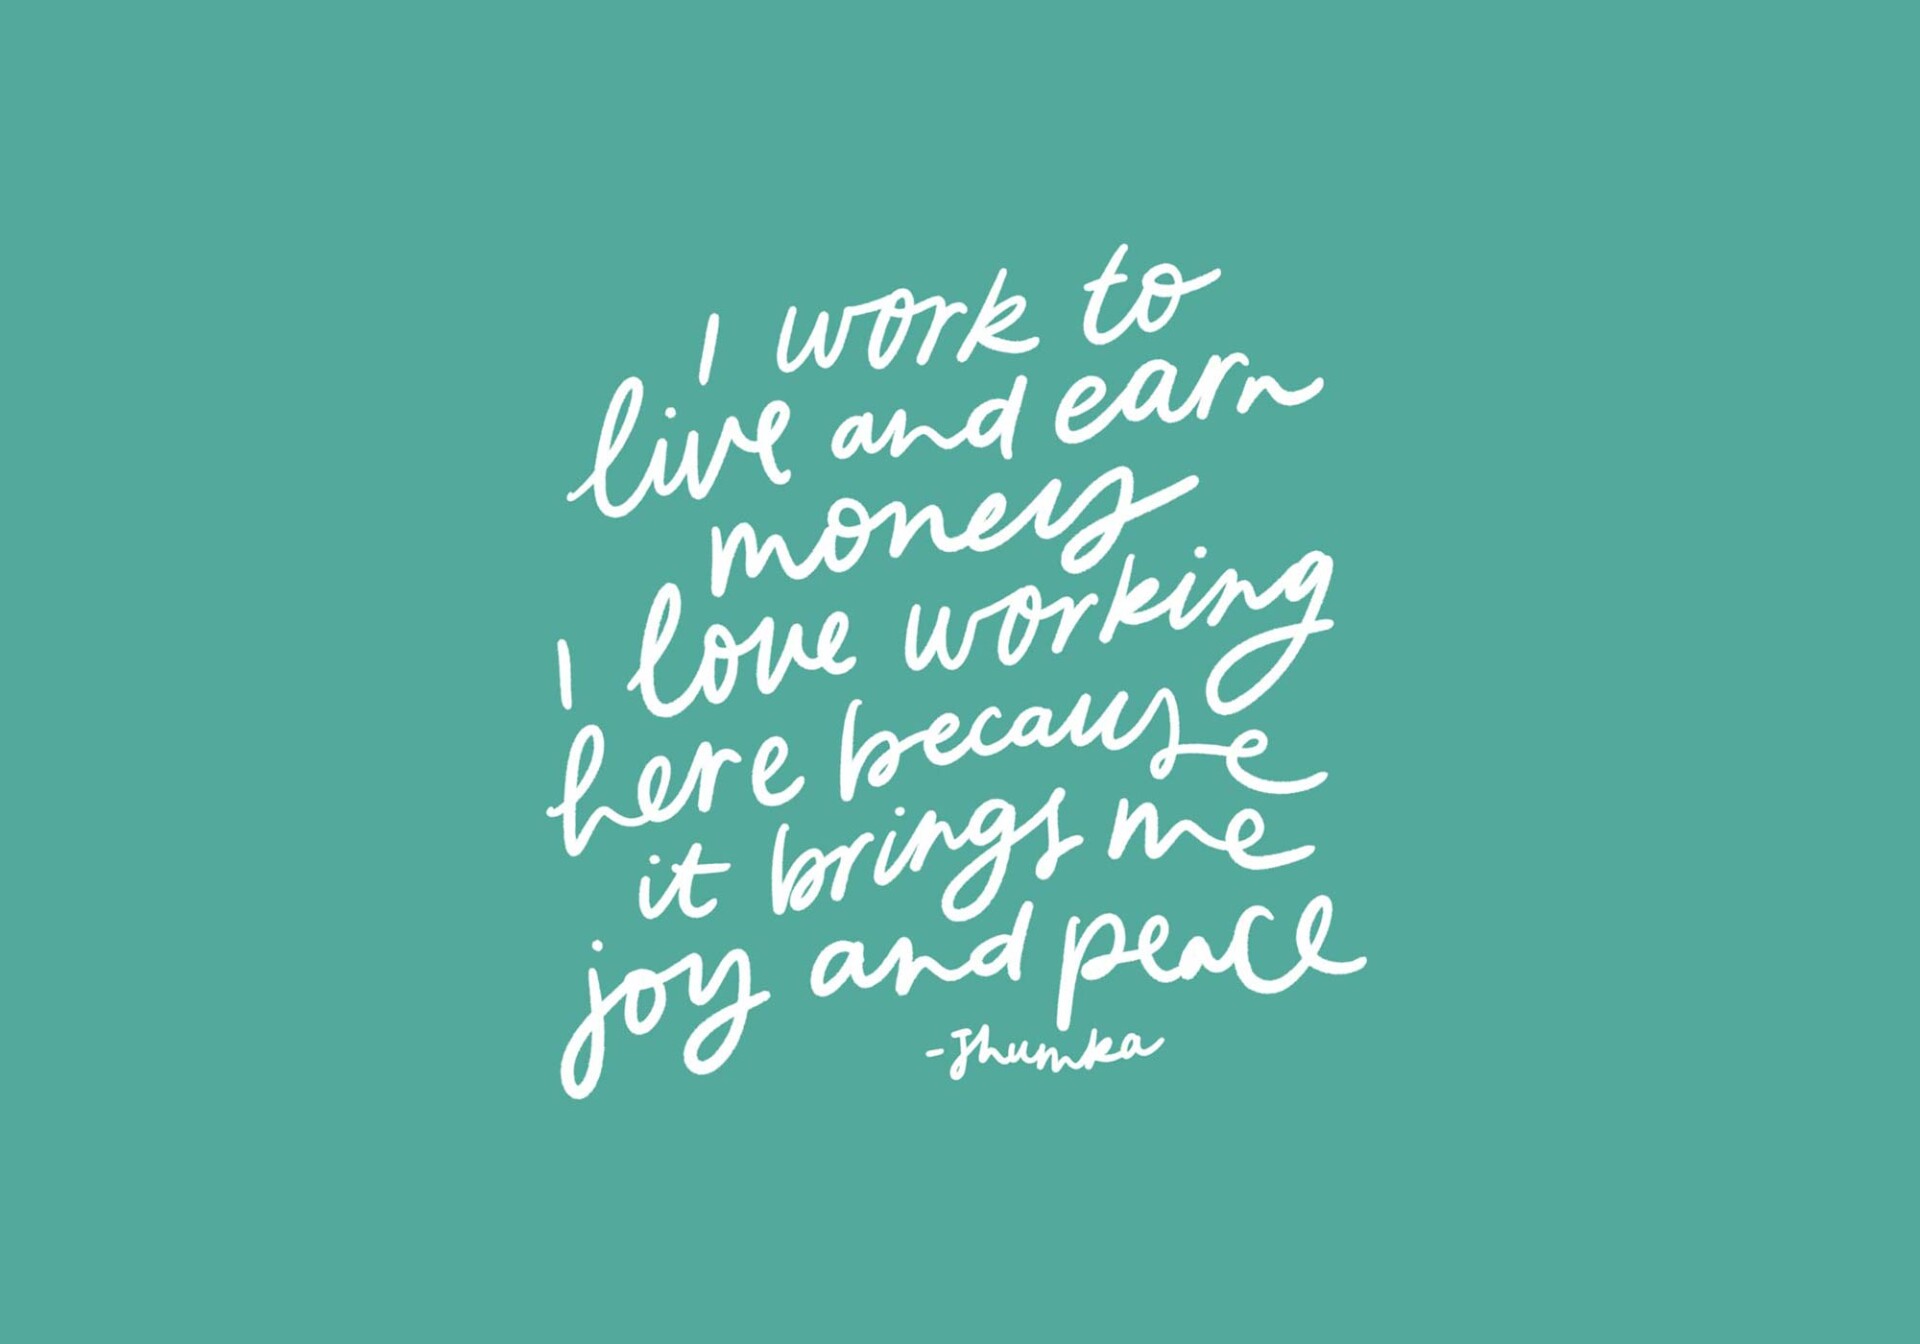 I work to
live and earn
money
I love working
here because
it brings me
joy and peace
-Jhumka